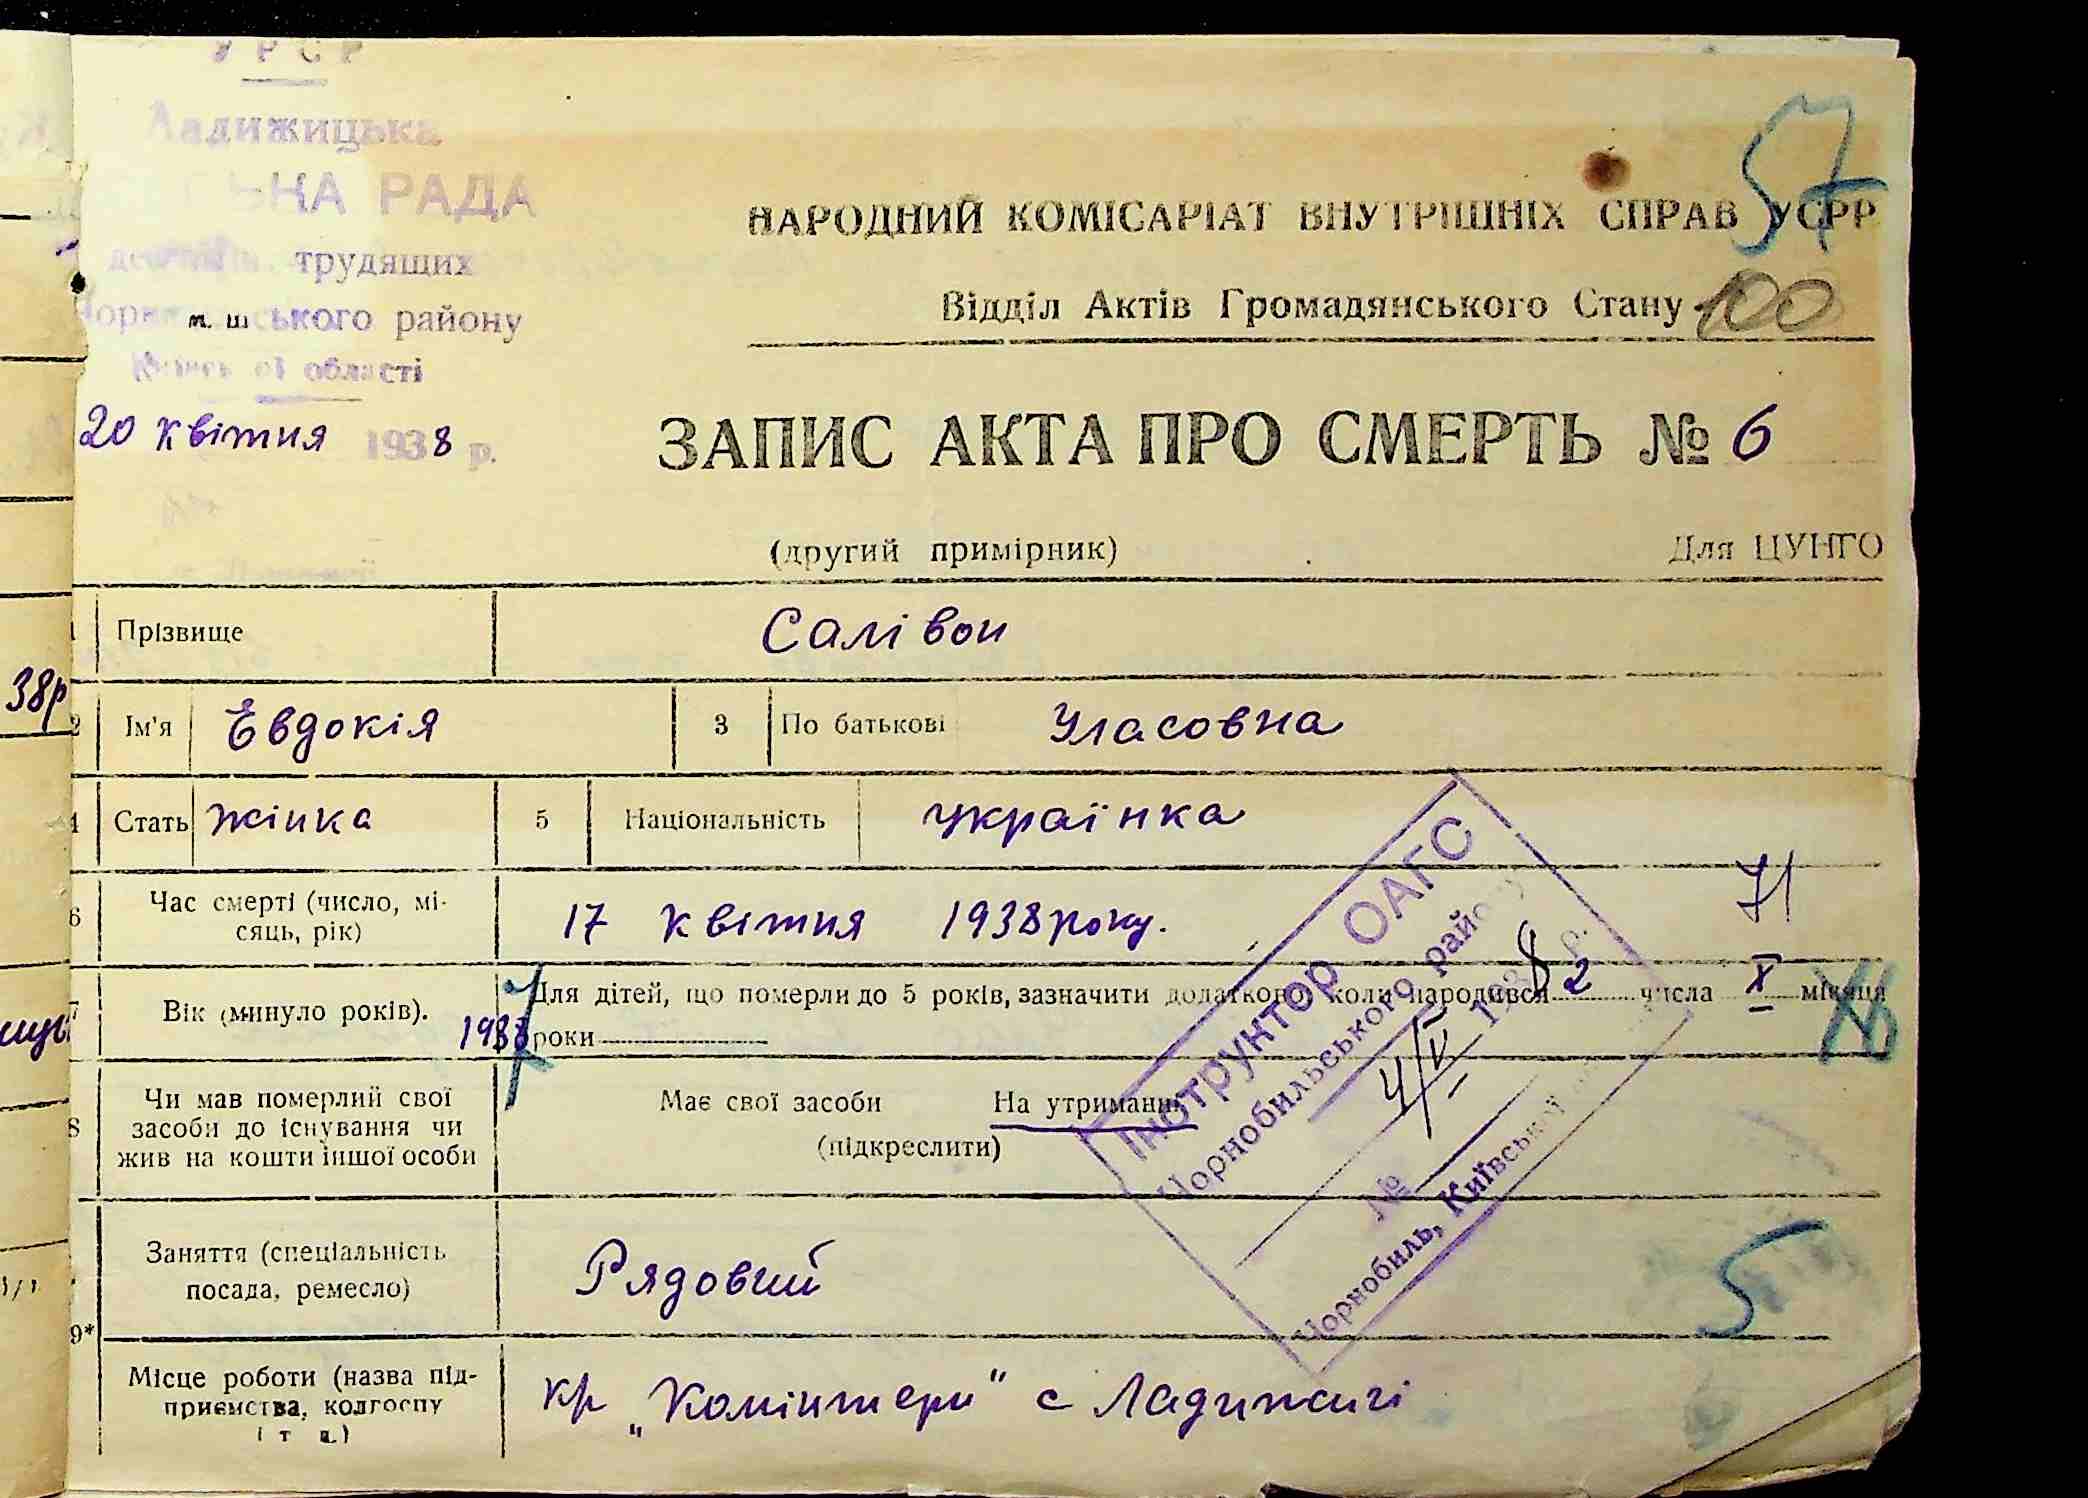 УРСР
Ладижицька
СЬКА РАДА
депутатів трудящих
Чорнобильського району
м. ш
Київської області
20 квітня 1938 р.
57
НАРОДНИЙ КОМІСАРІАТ ВНУТРІШНІХ СПРАВ УСРР
Відділ Актів Громадянського Стану 100
ЗАПИС АКТА ПРО СМЕРТЬ № 6
(другий примірник) Для ЦУНГО
Прізвище Салівон
38р
2 Ім'я Євдокія 3 По батькові Уласовна
4 Стать жінка 5 Національність українка
6 Час смерті (число, мі-
сяць, рік) 17 квітня 1938 року.
7 Вік (минуло років). Для дітей, що померли до 5 років, зазначити додатково, коли народився 2 числа X місяця
193 роки
8 Чи мав померлий свої
засоби до існування чи
жив на кошти іншої особи
Має свої засоби На утриманні
(підкреслити)
Інструктор ОАГС
Чорнобильського району
4/IV 1938 р.
№
Чорнобиль, Київської
Заняття (спеціальність
посада, ремесло) Рядовий
5
9*
Місце роботи (назва під-
приємства, колгоспу
і т д.)
кр „Комінтерн" с Ладижичі